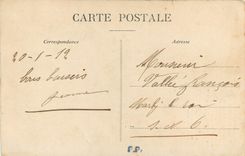 CARTE POSTALE
Correspondance
Adresse
20-1-12
Bons baisers
Monsieur
Vallée françois
Marly le roi
S. et O.
P.P.